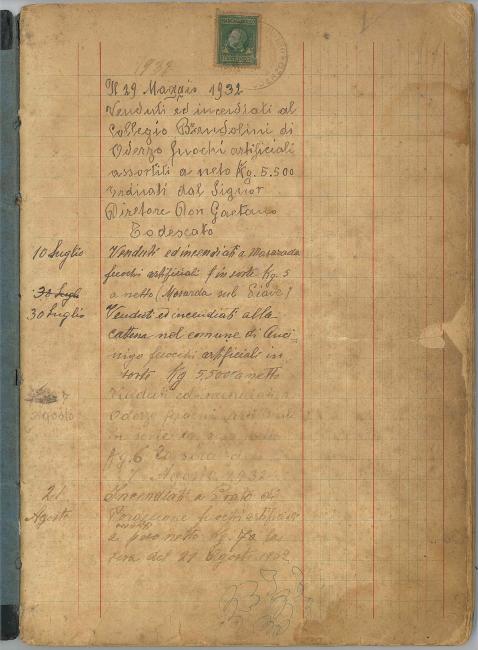 1932
Il 29 Maggio 1932
Venduti ed incendiati al
Collegio Brandolini di
Oderzo fuochi artificiali
assortiti a neto Kg. 5.500
ordinati dal Signor
Diretore Don Gaetano
Todescato
10 Luglio Venduti ed incendiati a Maserada
fuochi artificiali in sorte Kg. 5
30 Lugli a netto (Maserda sul Piave)
30 Luglio Venduti ed incendiati alla
cattena nel comune di
fuochi artificiali in
sorte Kg 5,500 a netto
Venduti ed incendiati a
Agosto Oderzo fuochi
in
Kg. 6 la sera del
7 Agosto 1932
21 Incendiati a Prato di
Agosto fuochi artificiali
a peso netto Kg. 7 la
sera del 21 Agosto 1932